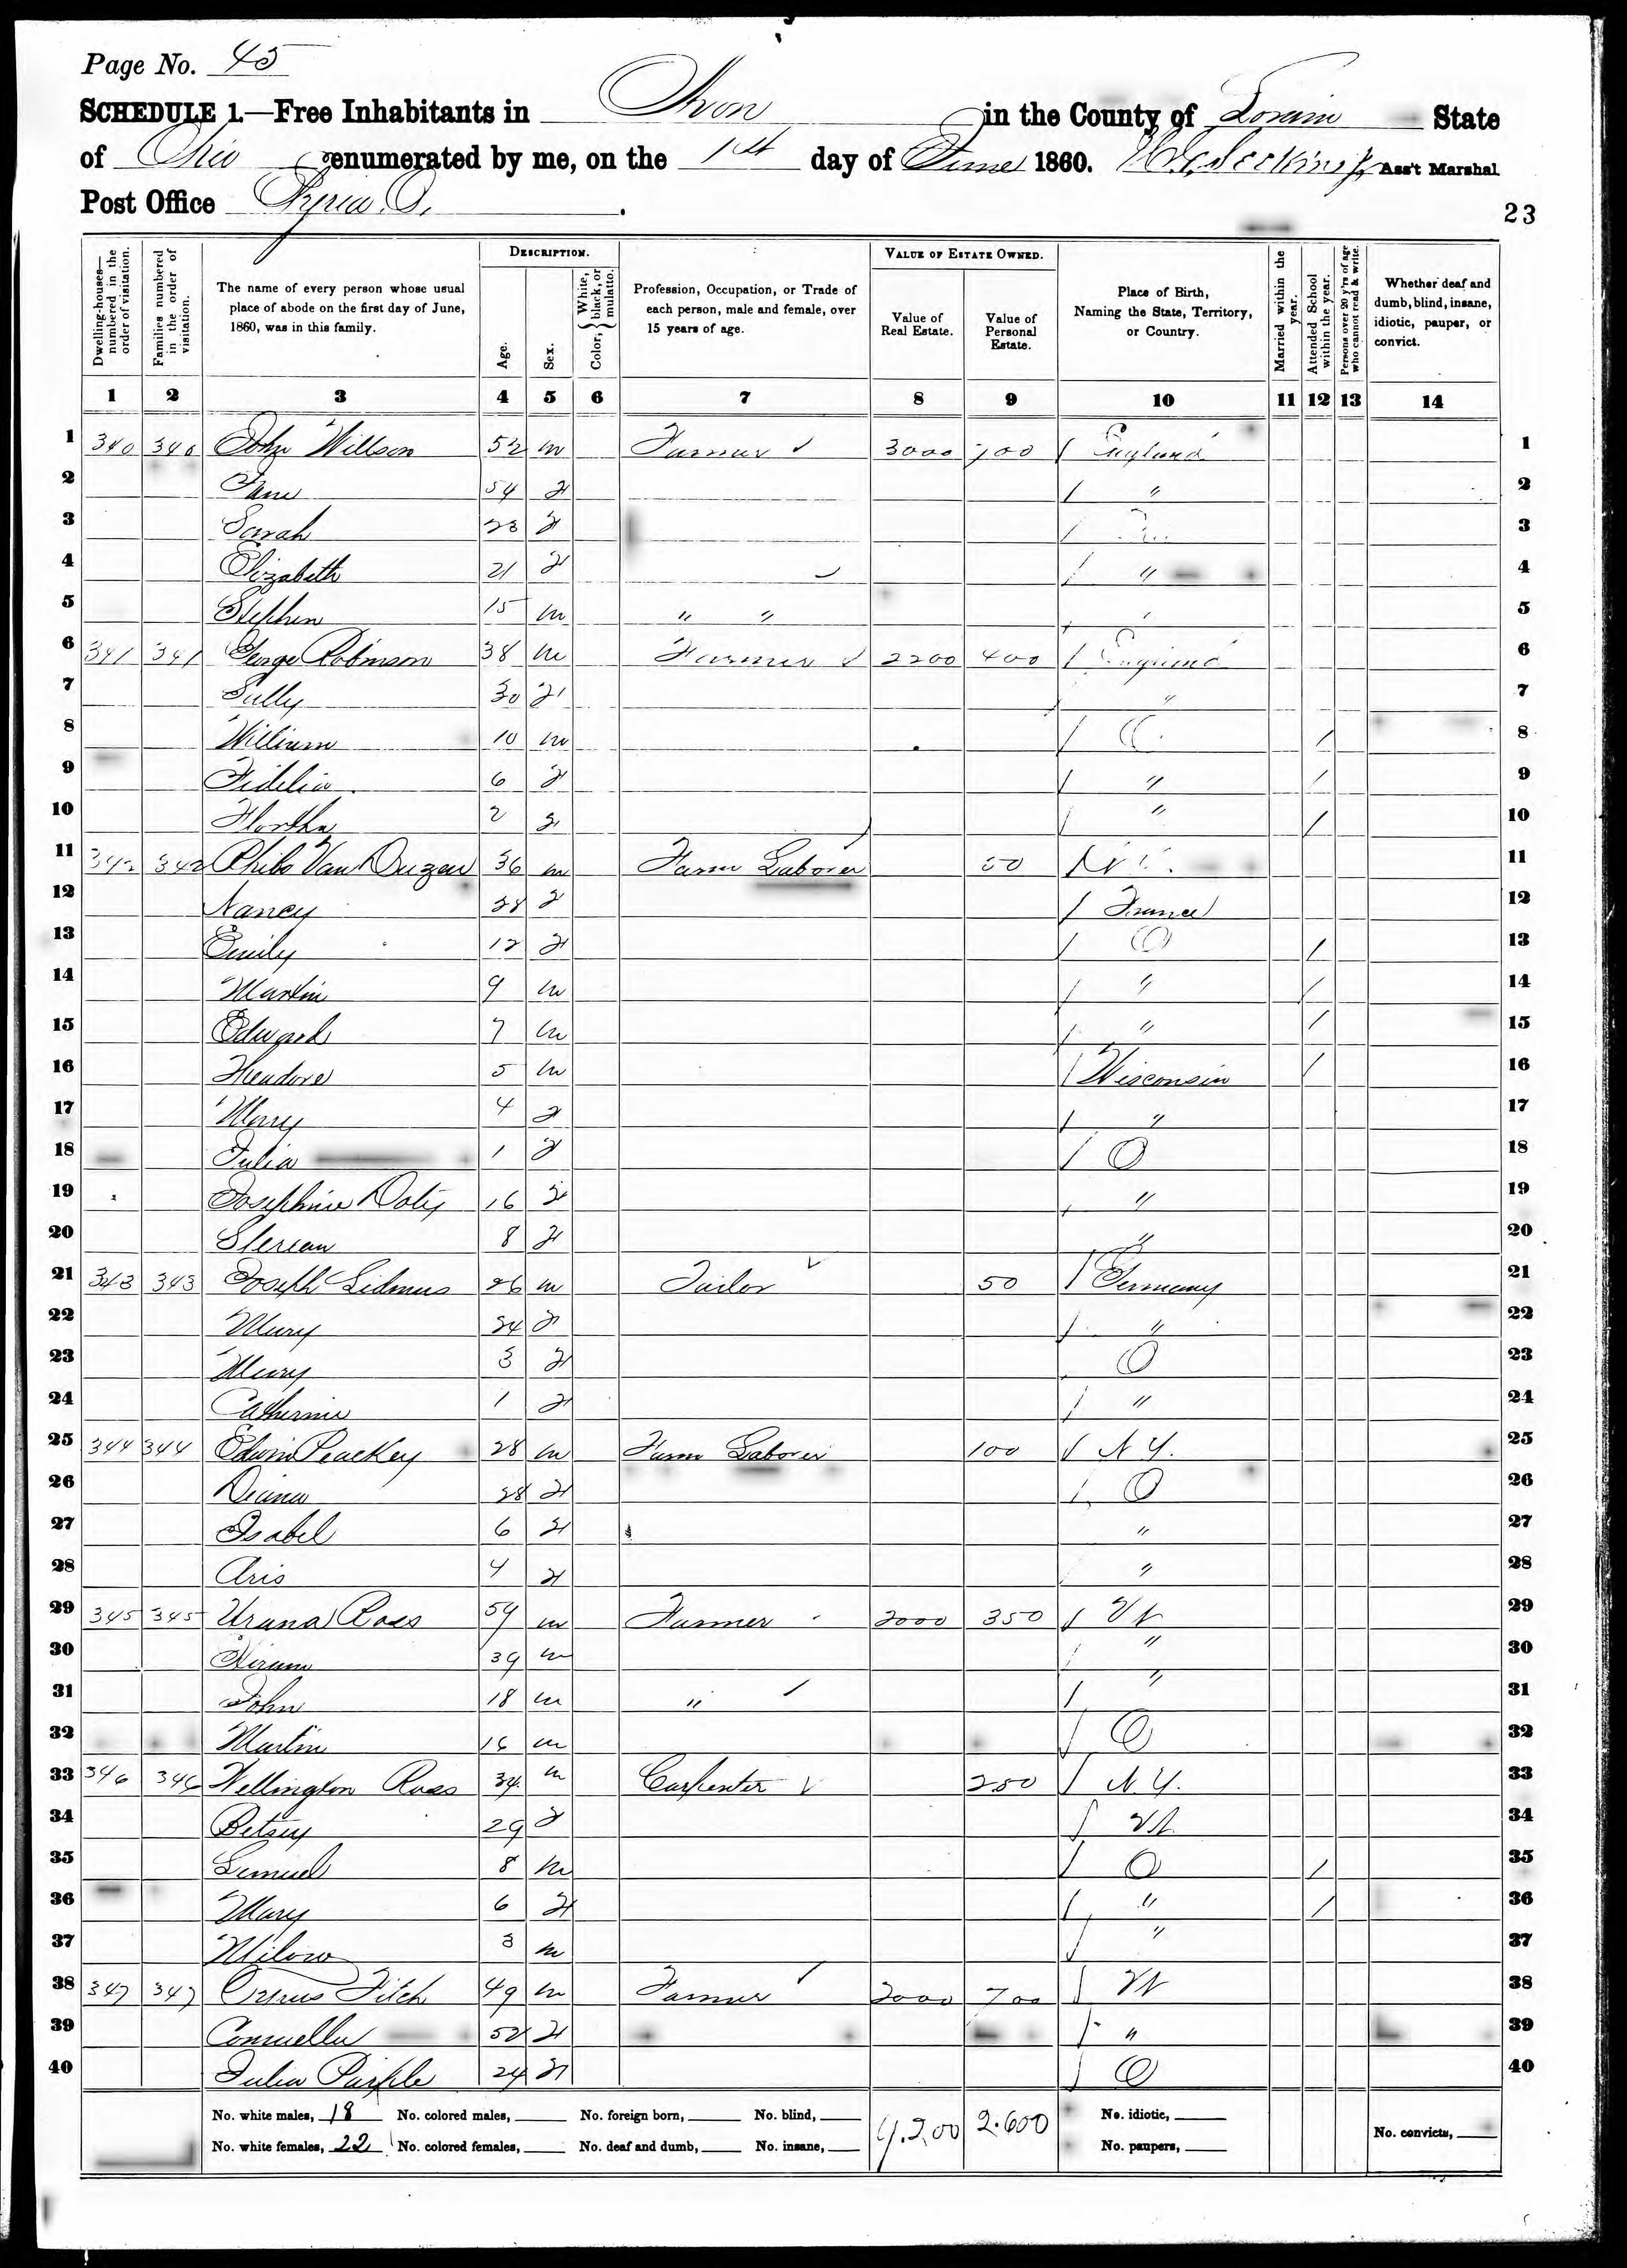 Page No. 45
SCHEDULE 1.—Free Inhabitants in Avon in the County of Lorain State
of Ohio enumerated by me, on the 14 day of June 1860. Ass't Marshal
Post Office Elyria O.
23
Dwelling-houses—numbered in the order of visitation.
Families numbered in the order of visitation.
The name of every person whose usual place of abode on the first day of June, 1860, was in this family.
DESCRIPTION.
Age.
Sex.
Color, } White, black, or mulatto.
Profession, Occupation, or Trade of each person, male and female, over 15 years of age.
VALUE OF ESTATE OWNED.
Value of Real Estate.
Value of Personal Estate.
Place of Birth, Naming the State, Territory, or Country.
Married within the year.
Attended School within the year.
Persons over 20 y'rs of age who cannot read & write.
Whether deaf and dumb, blind, insane, idiotic, pauper, or convict.
1 2 3 4 5 6 7 8 9 10 11 12 13 14
1 340 340 John Willson 52 m Farmer 3000 700 / England 1
2 Jane 54 f / " 2
3 Sarah 23 f / 3
4 Elizabeth 21 f / " 4
5 Stephen 15 m " " / 5
6 341 341 George Robinson 38 m Farmer 2200 400 / England 6
7 Sally 30 f / " 7
8 William 10 m / O / 8
9 Fidelia 6 f / " / 9
10 2 f / " / 10
11 342 342 Philo Van Duzen 36 m Farm Laborer 50 / N Y. 11
12 Nancy 28 f / France 12
13 Emily 12 f / O / 13
14 Martin 9 m / " / 14
15 Edward 7 m / " / 15
16 Theodore 5 m / Wisconsin / 16
17 Mary 4 f / " 17
18 Julia 1 f / O 18
19 Josephine Doty 16 f / " 19
20 8 f " 20
21 343 343 Joseph Lidmus 26 m Tailor 50 / Germany 21
22 Mary 24 f / " 22
23 Mary 3 f O 23
24 Catherine 1 f / " 24
25 344 344 Edwin Peackey 28 m Farm Laborer 100 / N Y. 25
26 Diana 28 f / O 26
27 Isabel 6 f " 27
28 Aris 4 f " 28
29 345 345 Urana Ross 59 m Farmer 2000 350 / Vt 29
30 Hiram 39 m / " 30
31 John 18 m " / " 31
32 Martin 16 m / O 32
33 346 346 Wellington Ross 34 m Carpenter 250 / N.Y. 33
34 Betsey 29 f / Vt. 34
35 Lemuel 8 m / O / 35
36 Mary 6 f / " / 36
37 Milow 3 m / " 37
38 347 347 Cyrus Fitch 49 m Farmer 2000 700 / Vt 38
39 52 f / " 39
40 Julia Purple 24 f / O 40
No. white males, 18 No. colored males, No. foreign born, No. blind, 9.200 2.600 No. idiotic,
No. white females, 22 No. colored females, No. deaf and dumb, No. insane, No. paupers, No. convicts,